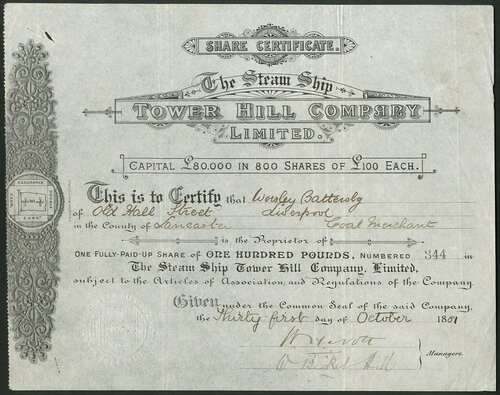 SHARE CERTIFICATE.
The Steam Ship
TOWER HILL COMPANY
LIMITED.
CAPITAL £80.000 IN 800 SHARES OF £100 EACH.
This is to Certify that Worsley Battersby
of Old Hall Street Liverpool
in the County of Lancaster Coal Merchant
is the Proprietor of
ONE FULLY-PAID-UP SHARE OF ONE HUNDRED POUNDS, NUMBERED 344 in
The Steam Ship Tower Hill Company, Limited,
subject to the Articles of Association and Regulations of the Company.
Given under the Common Seal of the said Company,
the Thirty first day of October 1881
Managers.